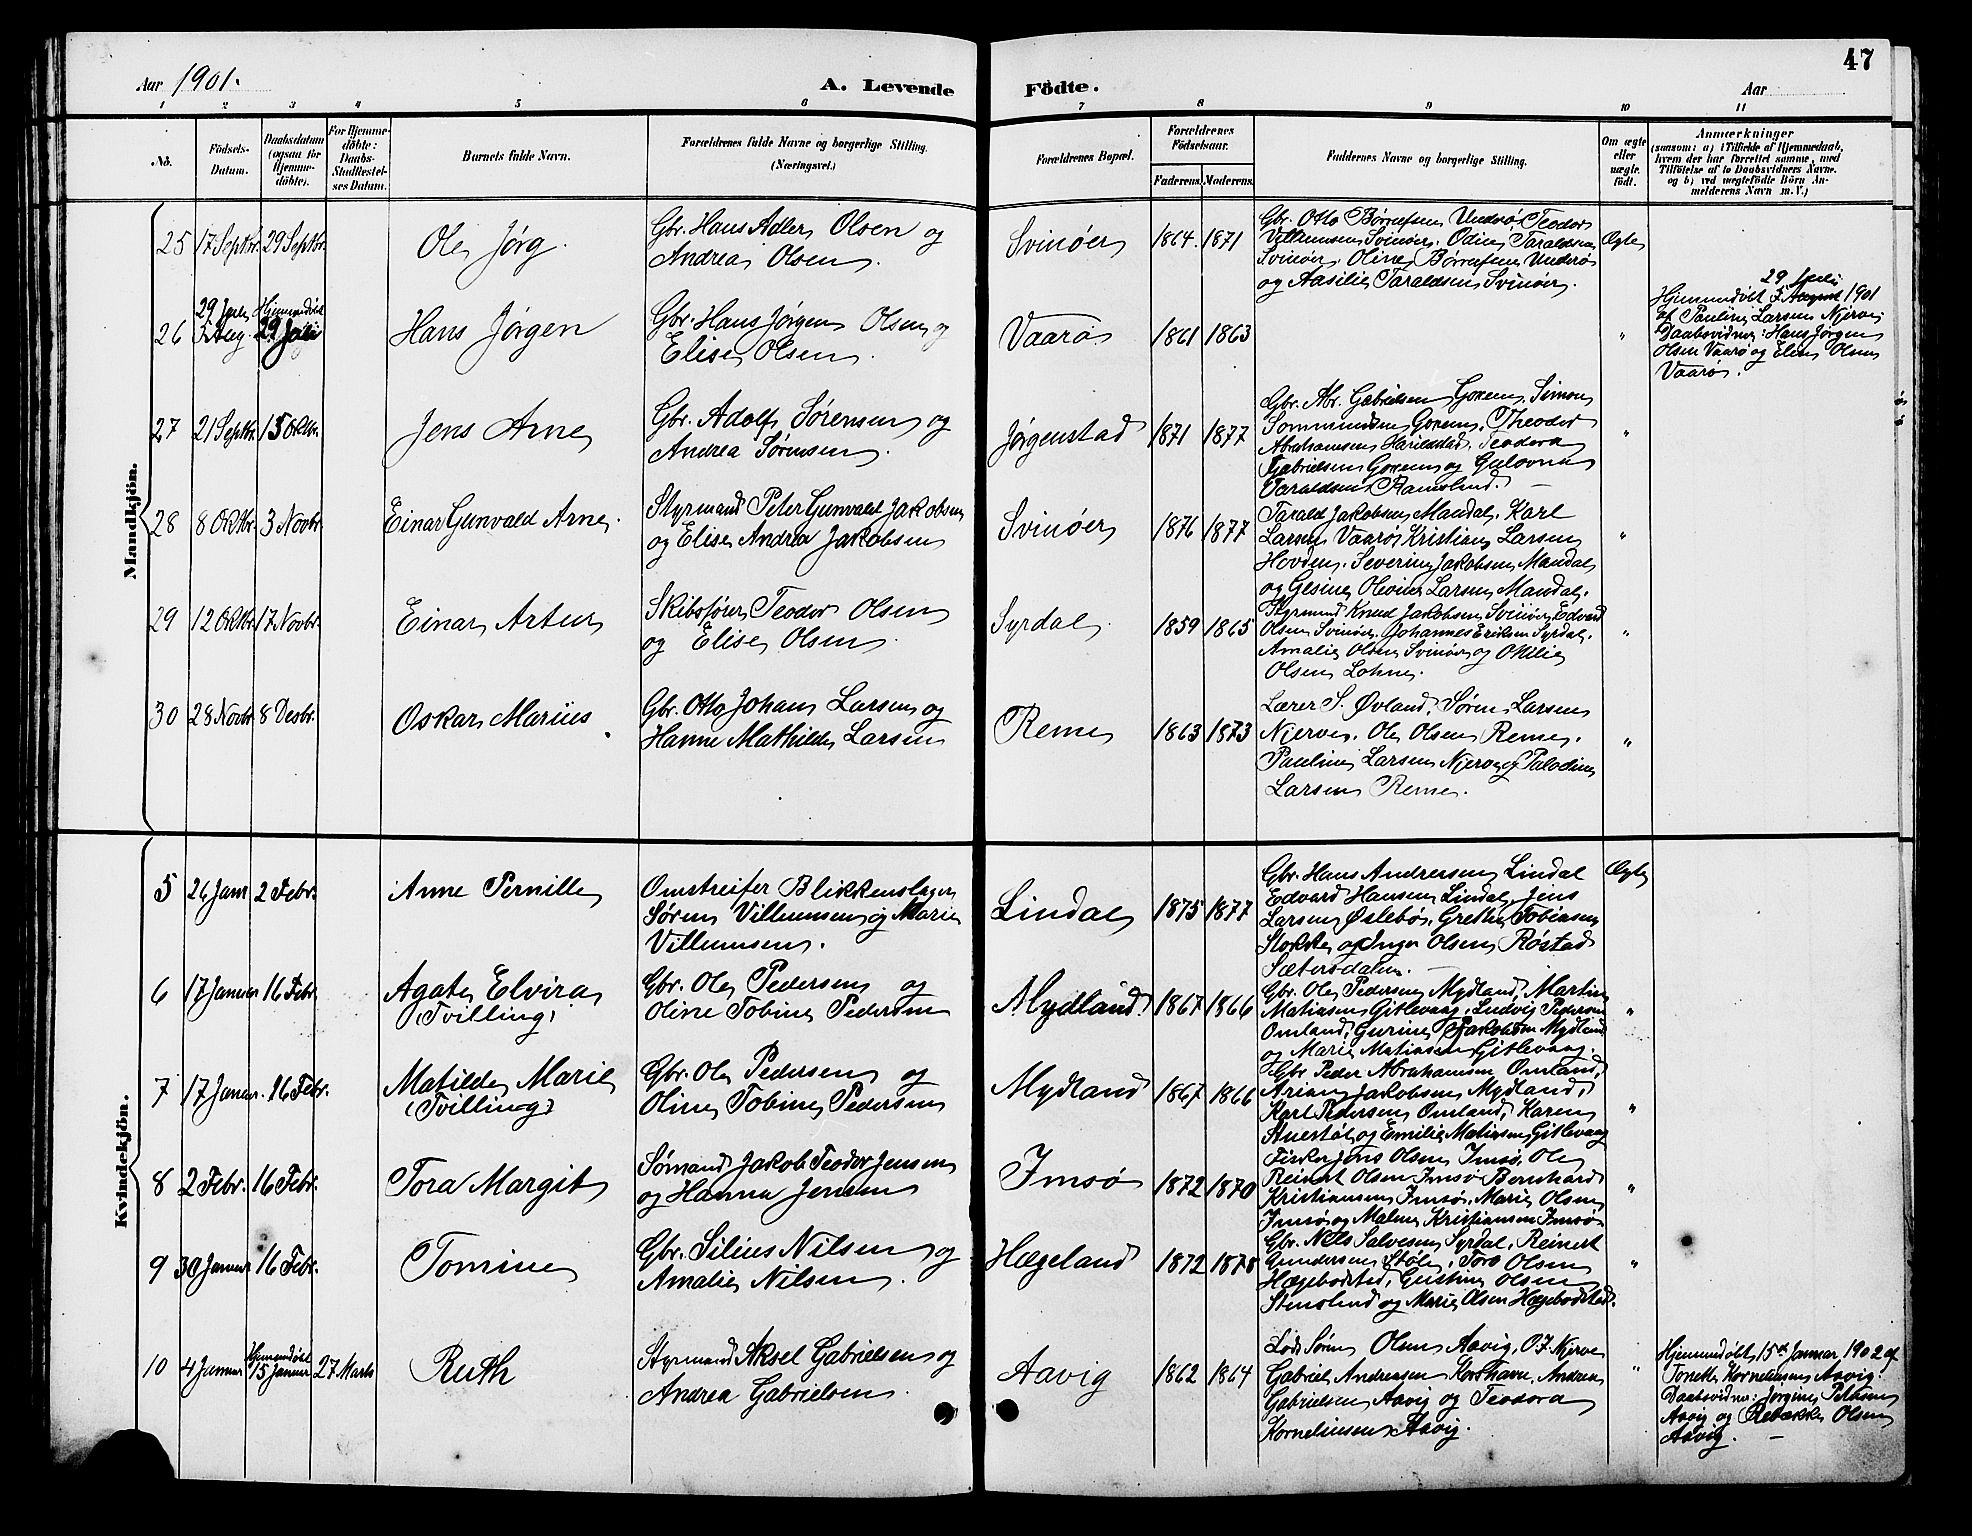 47
Aar 1901.
A. Levende Födte.
Aar
1 2 3 4 5 6 7 8 9 10 11
No.
Födsels-
Datum.
Daabsdatum
(ogsaa for
Hjemme-
döbte).
For Hjemme-
döbte:
Daabs-
Stadfæstel-
ses Datum.
Barnets fulde Navn.
Forældrenes fulde Navne og borgerlige Stilling.
(Næringsvei.)
Forældrenes Bopæl.
Forældrenes
Födselsaar.
Faderens. Moderens.
Faddernes Navne og borgerlige Stilling.
Om ægte
eller
uægte
födt.
Anmærkninger
(saasom: a) i Tilfælde af Hjemmedaab,
hvem der har forrettet samme, med
Tilföielse af to Daabsvidners Navne,
og b) ved uægtefödte Börn An-
melderens Navn m. V.)
Mandkjön.
25 17 Septbr. 29 Septbr.
Ole Jörg.
Gbr. Hans Adler Olsen og
Andrea Olsen.
Svinöer 1864. 1871
Gbr. Otto Börrufsen Underö, Teodor
Villumsen Svinöer. Odin Taraldsen
Svinöer. Oline Börrufsen Underö
og Aasilie Taraldsen Svinöer.
Ægte
26 29 Juli 5 Aug. Hjemmedöbt 29 Juli
Hans Jörgen
Gbr. Hans Jörgen Olsen og
Elise Olsen.
Vaarö 1861 1863
"
29 Juli
Hjemmedöbt 5 August 1901
af Pauline Larsen Njerve;
Daabsvidner: Hans Jörgen
Olsen Vaarö og Elise Olsen
Vaarö.
27 21 Septbr. 13 Oktbr.
Jens Arne
Gbr. Adolf Sörensen og
Andrea Sörensen.
Jörgenstad 1871 1877
Gbr. Abr. Gabrielsen Goxem, Simon
Sommundsen Goxem, Theodor
Abrahamsen Harildstad, Teodora
Gabrielsen Goxem og Gulovna
Taraldsen Ramslund.
"
28 8 Oktbr. 3 Novbr.
Einar Gunvald Arne.
Styrmand Peter Gunvald Jakobsen
og Elise Andrea Jakobsen
Svinöer 1876 1877
Tarald Jakobsen Mandal, Karl
Larsen Vaarö, Kristine Larsen
Hovden. Severine Jakobsen Mandal
og Gesine Olivine Larsen Mandal.
"
29 12 Oktbr. 17 Novbr.
Einar Artur
Skibsförer Teodor Olsen
og Elise Olsen.
Syrdal. 1859 1865
Styrmand Knud Jakobsen Svinöer, Edvard
Olsen Svinöer. Johannes Eriksen Syrdal,
Amalie Olsen Svinöer og Otilie
Olsen Lohne.
"
30 28 Novbr. 8 Desbr.
Oskar Marius.
Gbr. Otto Johan Larsen og
Hanne Mathilde Larsen
Reme 1863 1873
Lærer S. Övland, Sören Larsen
Njerve. Ole Olsen Reme.
Pauline Larsen Njerve og Palodine
Larsen Reme.
"
Kvindekjön.
5 26 Jan 2 Febr.
Anne Pernille
Omstreifer Blikkenslager
Sören Villumsen og Marie
Villumsen.
Lindal 1875 1877
Gbr. Hans Andersen Lindal
Edvard Hansen Lindal, Jens
Larsen Öslebö, Grethe Tobiasen
Stokke og Inger Olsen Röstad
Sætersdalen.
Ægte
6 17 Januar 16 Febr
Agate Elvira
(Tvilling)
Gbr. Ole Pedersen og
Oline Tobine Pedersen
Mydland 1867 1866
Gbr. Ole Pedersen Mydland, Martin
Matiasen Gitlevaag, Ludvig Pedersen
Omland, Gurine Jakobsen Mydland
og Marie Matiasen Gitlevaag.
"
7 17 Januar. 16 Febr.
Matilde Marie
(Tvilling)
Gbr. Ole Pedersen og
Oline Tobine Pedersen
Mydland 1867 1866
Gbr Peder Abrahamsen Omland,
Arian Jakobsen Mydland,
Karl Pedersen Omland, Karen
Stuestöl og Emilie Matiasen Gitlevaag
"
8 2 Febr. 16 Febr.
Tora Margit
Sömand Jakob Teodor Jensen
og Hanna Jensen
Imsö 1872 1870
Fisker Jens Olsen Imsö, Ole
Reinert Olsen Imsö Bernhard
Kristiansen Imsö, Marie Olsen
Imsö og Malene Kristiansen Imsö
"
9 30 Januar 16 Febr.
Tomine
Gbr. Silius Nilsen og
Amalie Nilsen.
Hægeland 1872 1878
Gbr. Nels Salvesen Syrdal, Reinert
Gundersen Stöle, Tore Olsen
Hægebostad, Gustine Olsen
Stenslund og Marie Olsen Hægebostad.
"
10 4 Januar Hjemmedöbt 15 Januar 27 Marts
Ruth
Styrmand Aksel Gabrielsen og
Andrea Gabrielsen.
Aavig 1862 1864
Lods Sören Olsen Aavig, O. J. Njerve
Gabriel Andreasen Korshavn, Andrea
Gabrielsen Aavig og Teodora
Korneliusen Aavig.
"
Hjemmedöbt 15de Januar 1902 af
Tonette Korneliusen Aavig.
Daabsvidner: Jörgine Petersen
Aavig og Rebække Olsen
Aavig.